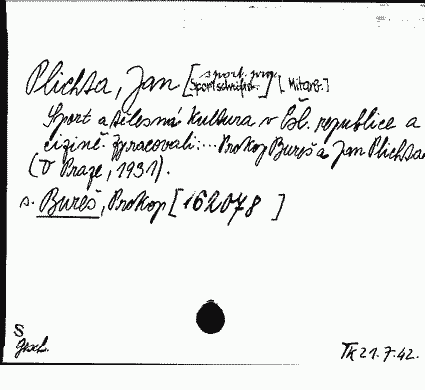 Plichta, Jan [Sportschriftst.] [Mitarb.]
Sport a tělesná kultura v Čsl. republice a
cizině. Zpracovali:... Prokop Bureš a Jan Plichta.
(V Praze, 1931).
s. Bureš, Prokop [162078]
S
gesch.
Tk 21.7.42.